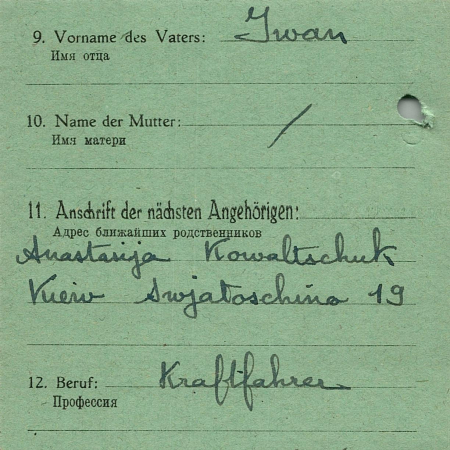 9. Vorname des Vaters: Iwan
Имя отца
10. Name der Mutter: /
Имя матери
11. Anschrift der nächsten Angehörigen:
Адрес ближайших родственников
Anastasija Kowaltschuk
Kiew Swjatoschino 19
12. Beruf: Kraftfahrer
Профессия